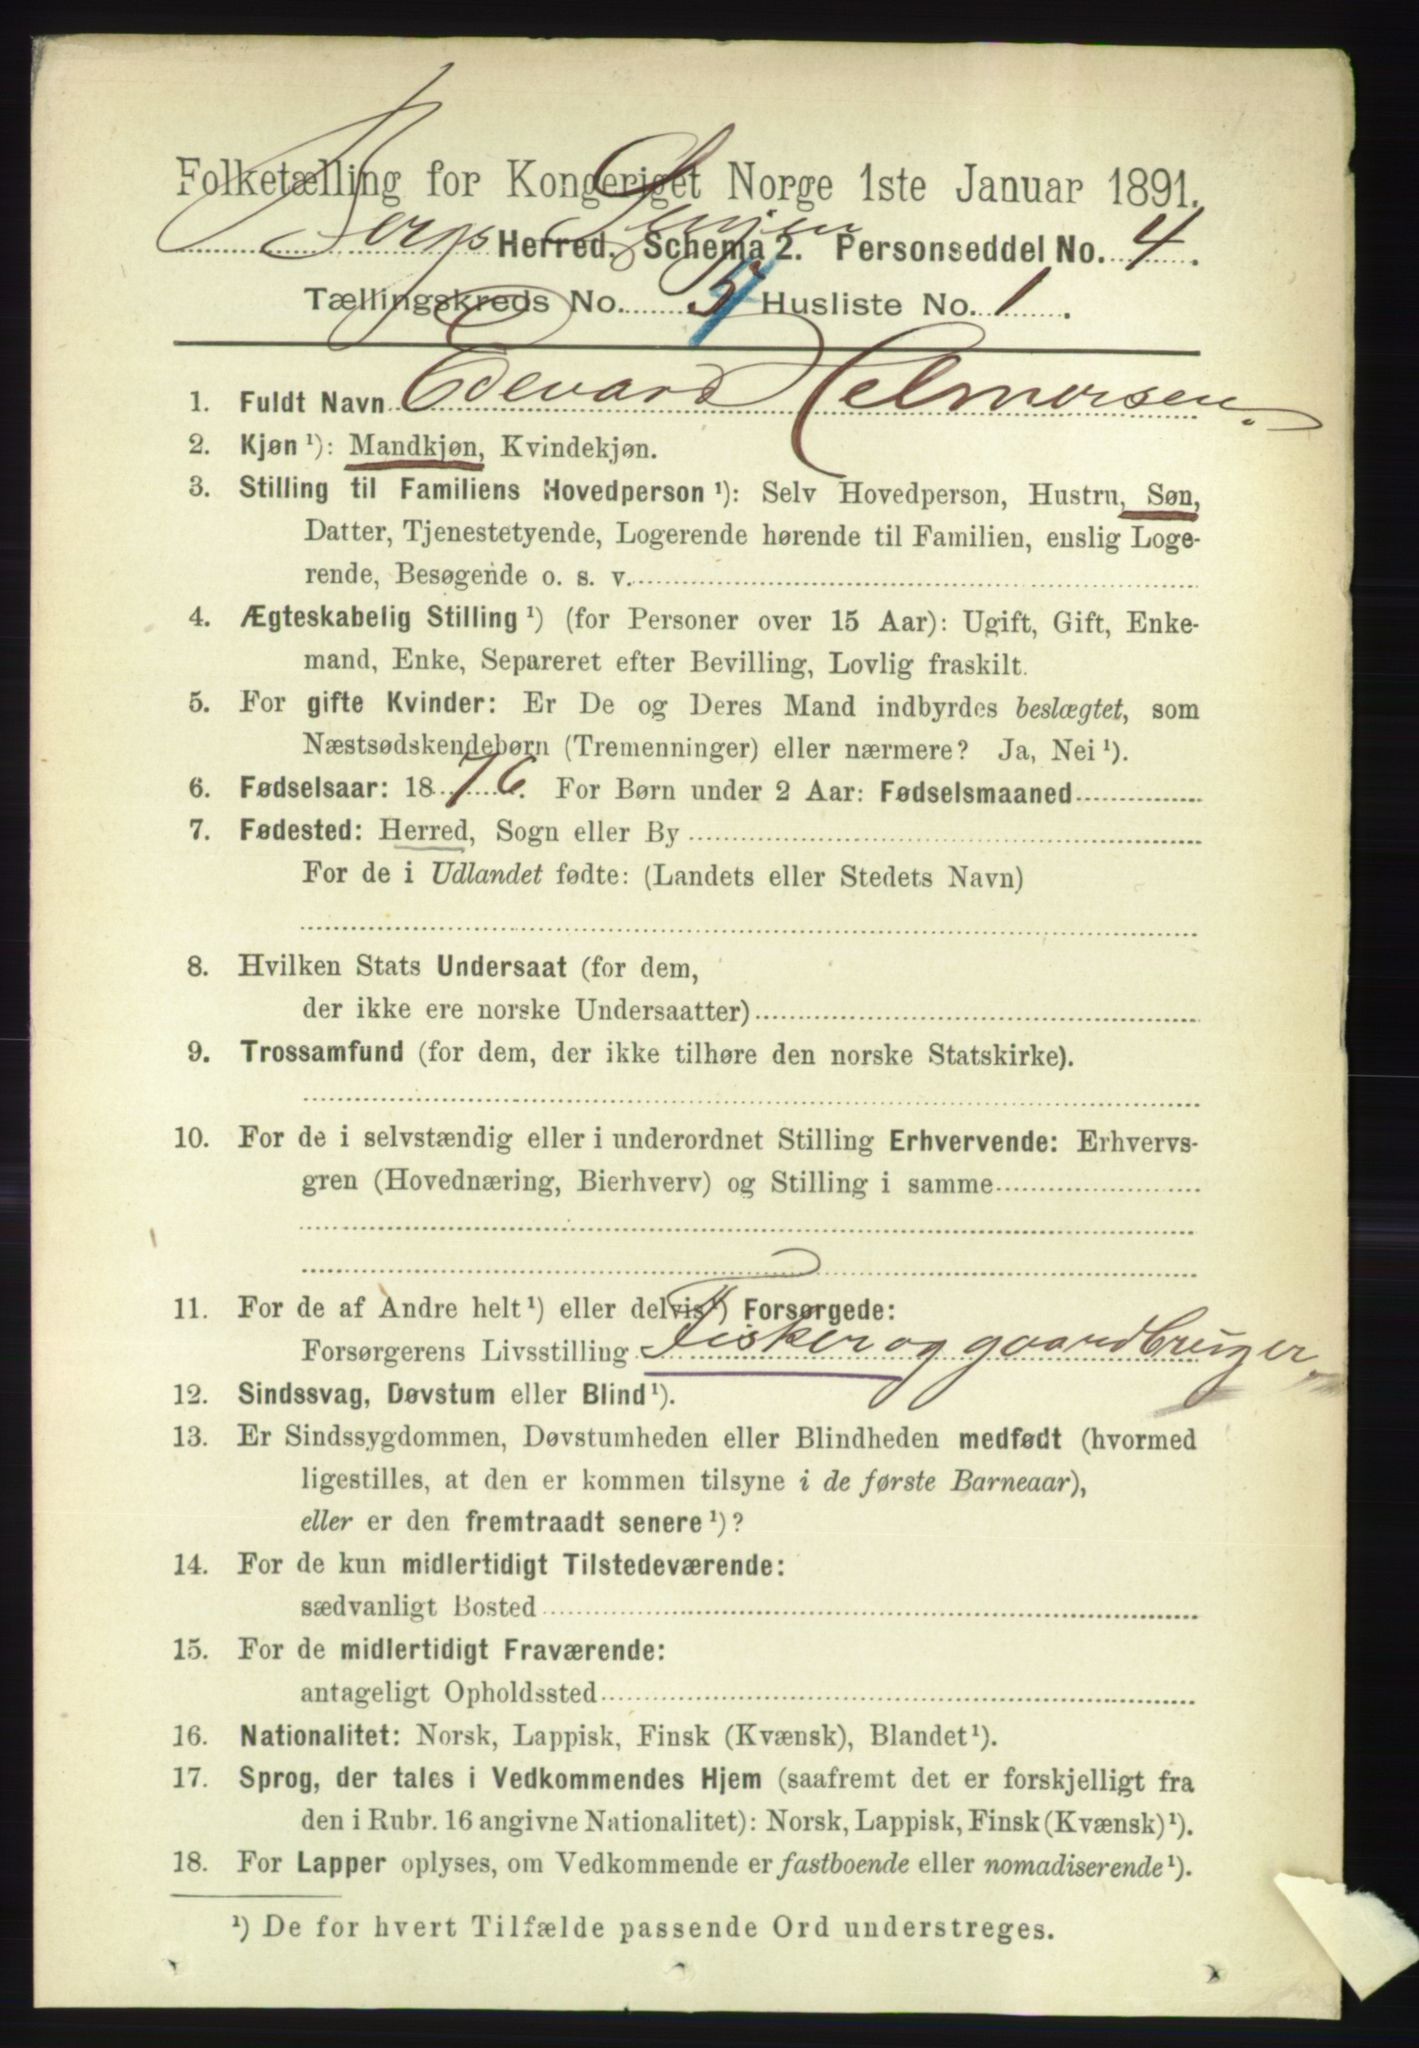 Folketælling for Kongeriget Norge 1ste Januar 1891.
Bergs Senjen Herred. Schema 2. Personseddel No. 4.
Tællingskreds No. Husliste No. 1.
1. Fuldt Navn Edevard Helmersen.
2. Kjøn ¹): Mandkjøn, Kvindekjøn.
3. Stilling til Familiens Hovedperson ¹): Selv Hovedperson, Hustru, Søn,
Datter, Tjenestetyende, Logerende hørende til Familien, enslig Loge-
rende, Besøgende o. s. v.
4. Ægteskabelig Stilling ¹) (for Personer over 15 Aar): Ugift, Gift, Enke-
mand, Enke, Separeret efter Bevilling, Lovlig fraskilt.
5. For gifte Kvinder: Er De og Deres Mand indbyrdes beslægtet, som
Næstsødskendebørn (Tremenninger) eller nærmere? Ja, Nei ¹).
6. Fødselsaar: 1876. For Børn under 2 Aar: Fødselsmaaned
7. Fødested: Herred, Sogn eller By
For de i Udlandet fødte: (Landets eller Stedets Navn)
8. Hvilken Stats Undersaat (for dem,
der ikke ere norske Undersaatter)
9. Trossamfund (for dem, der ikke tilhøre den norske Statskirke).
10. For de i selvstændig eller i underordnet Stilling Erhvervende: Erhvervs-
gren (Hovednæring, Bierhverv) og Stilling i samme
11. For de af Andre helt ¹) eller delvis ¹) Forsørgede:
Forsørgerens Livsstilling Fisker og gaardbruger
12. Sindssvag, Døvstum eller Blind ¹).
13. Er Sindssygdommen, Døvstumheden eller Blindheden medfødt (hvormed
ligestilles, at den er kommen tilsyne i de første Barneaar),
eller er den fremtraadt senere ¹)?
14. For de kun midlertidigt Tilstedeværende:
sædvanligt Bosted
15. For de midlertidigt Fraværende:
antageligt Opholdssted
16. Nationalitet: Norsk, Lappisk, Finsk (Kvænsk), Blandet ¹).
17. Sprog, der tales i Vedkommendes Hjem (saafremt det er forskjelligt fra
den i Rubr. 16 angivne Nationalitet): Norsk, Lappisk, Finsk (Kvænsk) ¹).
18. For Lapper oplyses, om Vedkommende er fastboende eller nomadiserende ¹).
¹) De for hvert Tilfælde passende Ord understreges.